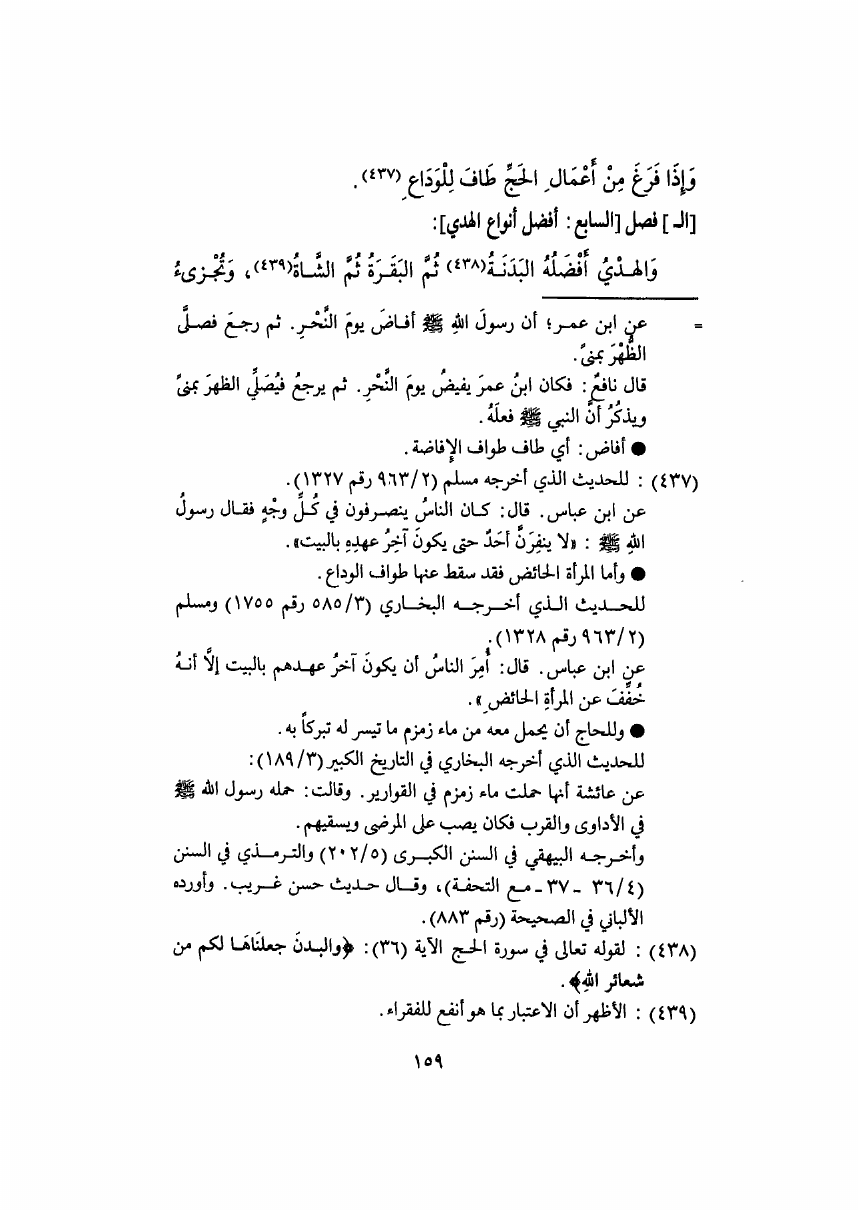 وَإِذَا فَرَغَ مِنْ أَعْمَالِ الحَجِّ طَافَ لِلْوَدَاعِ (٤٣٧) .
[الـ ] فصل [السابع : أفضل أنواع الهدي]:
وَالهَدْيُ أَفْضَلُهُ البَدَنَةُ(٤٣٨) ثُمَّ البَقَرَةُ ثُمَّ الشَّاةُ(٤٣٩) ، وَتُجْزِىءُ
= عن ابن عمر؛ أن رسولَ اللهِ ﷺ أفاضَ يومَ النَّحْرِ. ثم رجعَ فصلَّى
الظُّهْرَ بمنىً .
قال نافعٌ : فكان ابنُ عمرَ يفيضُ يومَ النَّحْرِ. ثم يرجعُ فيُصَلِّي الظهرَ بمنىً
ويذكُرُ أنَّ النبي ﷺ فعلَهُ .
● أفاض : أي طاف طواف الإفاضة .
(٤٣٧) : للحديث الذي أخرجه مسلم (٩٦٣/٢ رقم ١٣٢٧) .
عن ابن عباس . قال : كان الناسُ ينصرفون في كُلِّ وجْهٍ فقال رسولُ
اللهِ ﷺ : «لا ينفِرَنَّ أحَدٌ حتى يكونَ آخِرُ عهدِهِ بالبيت» .
● وأما المرأة الحائض فقد سقط عنها طواف الوداع .
للحديث الذي أخرجه البخاري (٥٨٥/٣ رقم ١٧٥٥) ومسلم
(٩٦٣/٢ رقم ١٣٢٨) .
عن ابن عباس . قال : أُمِرَ الناسُ أن يكونَ آخرُ عهدهم بالبيت إلَّا أنهُ
خُفِّفَ عن المرأةِ الحائضِ» .
● وللحاج أن يحمل معه من ماء زمزم ما تيسر له تبركاً به .
للحديث الذي أخرجه البخاري في التاريخ الكبير (١٨٩/٣) :
عن عائشة أنها حملت ماء زمزم في القوارير . وقالت : حمله رسول الله ﷺ
في الأداوى والقرب فكان يصب على المرضى ويسقيهم .
وأخرجه البيهقي في السنن الكبرى (٢٠٢/٥) والترمذي في السنن
(٣٦/٤ - ٣٧ - مع التحفة) ، وقال حديث حسن غريب . وأورده
الألباني في الصحيحة (رقم ٨٨٣) .
(٤٣٨) : لقوله تعالى في سورة الحج الآية (٣٦) : ﴿والبدنَ جعلنَاهَا لكم من
شعائر اللهِ﴾ .
(٤٣٩) : الأظهر أن الاعتبار بما هو أنفع للفقراء .
١٥٩